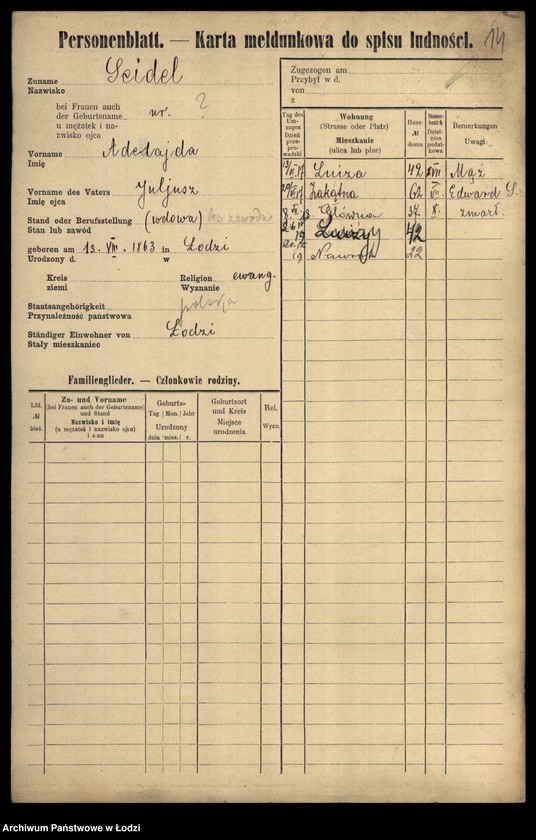 Personenblatt. — Karta meldunkowa do spisu ludności. 14
Zuname Seidel
Nazwisko
bei Frauen auch
der Geburtsname ur. ?
u mężatek i na-
zwisko ojca
Vorname Adedajda
Imię
Vorname des Vaters Juljusz
Imię ojca
Stand oder Berufsstellung (wdowa) bez zawodu
Stan lub zawód
geboren am 13. VIII. 1863 in Łodzi
Urodzony d. w
Kreis Religion ewang.
ziemi Wyznanie
Staatsangehörigkeit polska
Przynależność państwowa
Ständiger Einwohner von Łodzi
Stały mieszkaniec
Zugezogen am
Przybył w d.
von
z
Tag des Umzuges Dzień przeprowadzki
Wohnung (Strasse oder Platz) Mieszkanie (ulica lub plac)
Haus- № domu
Steuerbezirk Dzielnica podatkowa
Bemerkungen Uwagi
Luiza 42 Mąż
Zakątna 62 Edward S.
Główna 37 X. zmarł.
19 Luizy 42
19 Nawrot 22
Familienglieder. — Członkowie rodziny.
Lfd. № bież.
Zu- und Vorname
(bei Frauen auch der Geburtsname)
und Stand
Nazwisko i imię
(u mężatek i nazwisko ojca)
i stan
Geburts-
Tag Mon. Jahr
Urodzony
dnia mies. r.
Geburtsort
und Kreis
Miejsce
urodzenia
Rel.
Wyzn.
Archiwum Państwowe w Łodzi